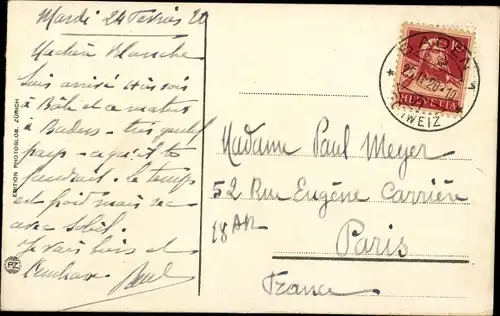 Mardi 24 Février 20
Machère Blanche
Suis arrivé hier soir
à Bâle et ce matin
à Baden - très gentil
pays - ce qu'il te
faudrait. le temps
est froid mais
avec soleil.
Je vais bien et
t'embrasse Paul
EDITION PHOTOGLOB, ZÜRICH
PZ
BADEN 1
HELVETIA
Madame Paul Meyer
52 Rue Eugène Carrière
18 Arr
Paris
France